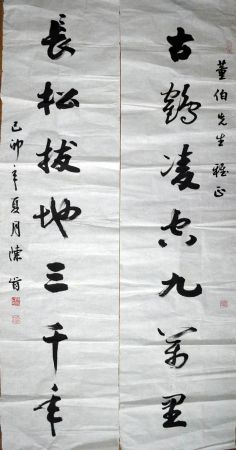 董伯先生雅正
古鶴凌空九萬里
長松拔地三千年
己卯年夏月陳